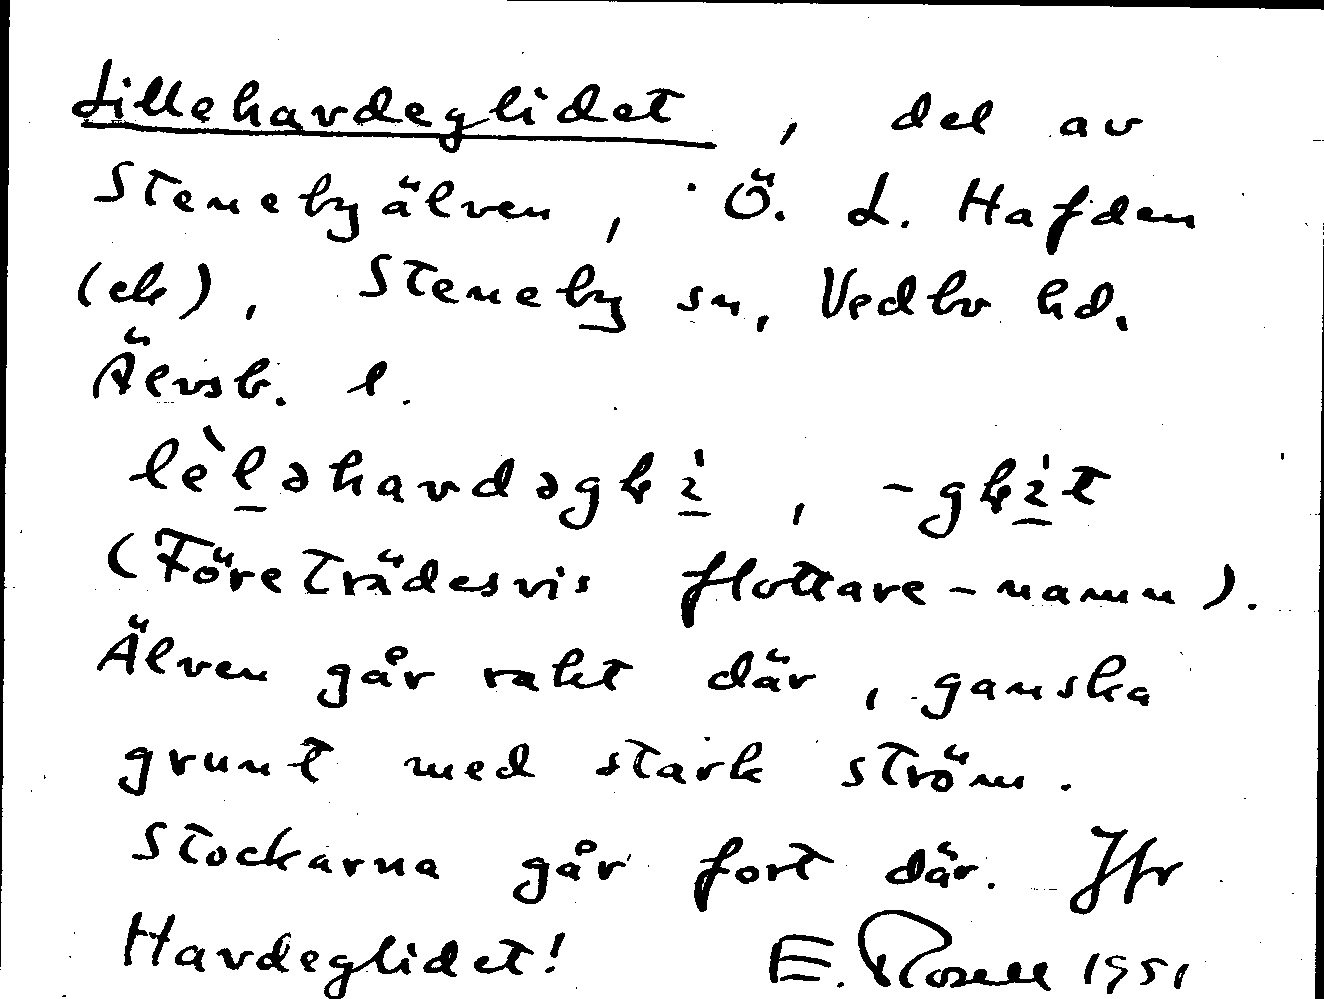 Lillehavdeglidet, del av
Stenebyälven, Ö. L. Hafden
(ek), Steneby sn, Vedbo hd.
Älvsb. l.
(Företrädesvis flottare-namn).
Älven går rakt där, ganska
grunt med stark ström.
Stockarna går fort där. Jfr
Havdeglidet! E. Rosell 1951